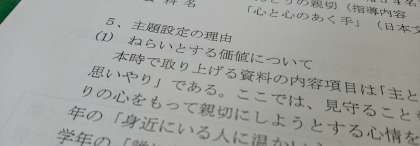 科名
りの親切（指導内容
「心と心のあく手」（日本文
5、主題設定の理由
(1) ねらいとする価値について
本時で取り上げる資料の内容項目は「主と
思いやり」である。ここでは、見守ること
りの心をもって親切にしようとする心情を
年の「身近にいる人に温かい
学年の「